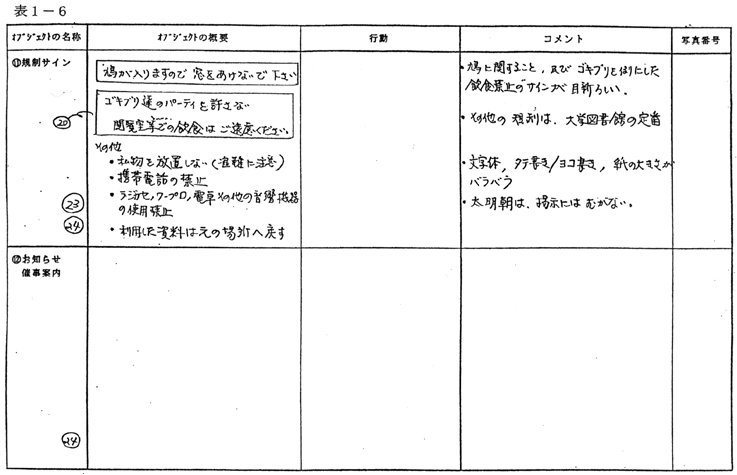 表1-6
ｵﾌﾞｼﾞｪｸﾄの名称
ｵﾌﾞｼﾞｪｸﾄの概要
行動
コメント
写真番号
⑪規制サイン
鳩が入りますので 窓をあけないで下さい
ゴキブリ達のパーティを許さない
閲覧室等での飲食はご遠慮ください。
⑳
その他
・私物を放置しない(盗難に注意)
・携帯電話の禁止
・ラジカセ,ワープロ,電卓その他の音響機器
の使用禁止
・利用した資料は元の場所へ戻す
㉓
㉔
・鳩に関すること，及びゴキブリを例にした
飲食禁止のサインが目新らしい．
・その他の規則は、大学図書館の定番
・文字体，タテ書き/ヨコ書き，紙の大きさが
バラバラ
・太明朝は、掲示にはむかない。
⑫お知らせ
催事案内
㉔